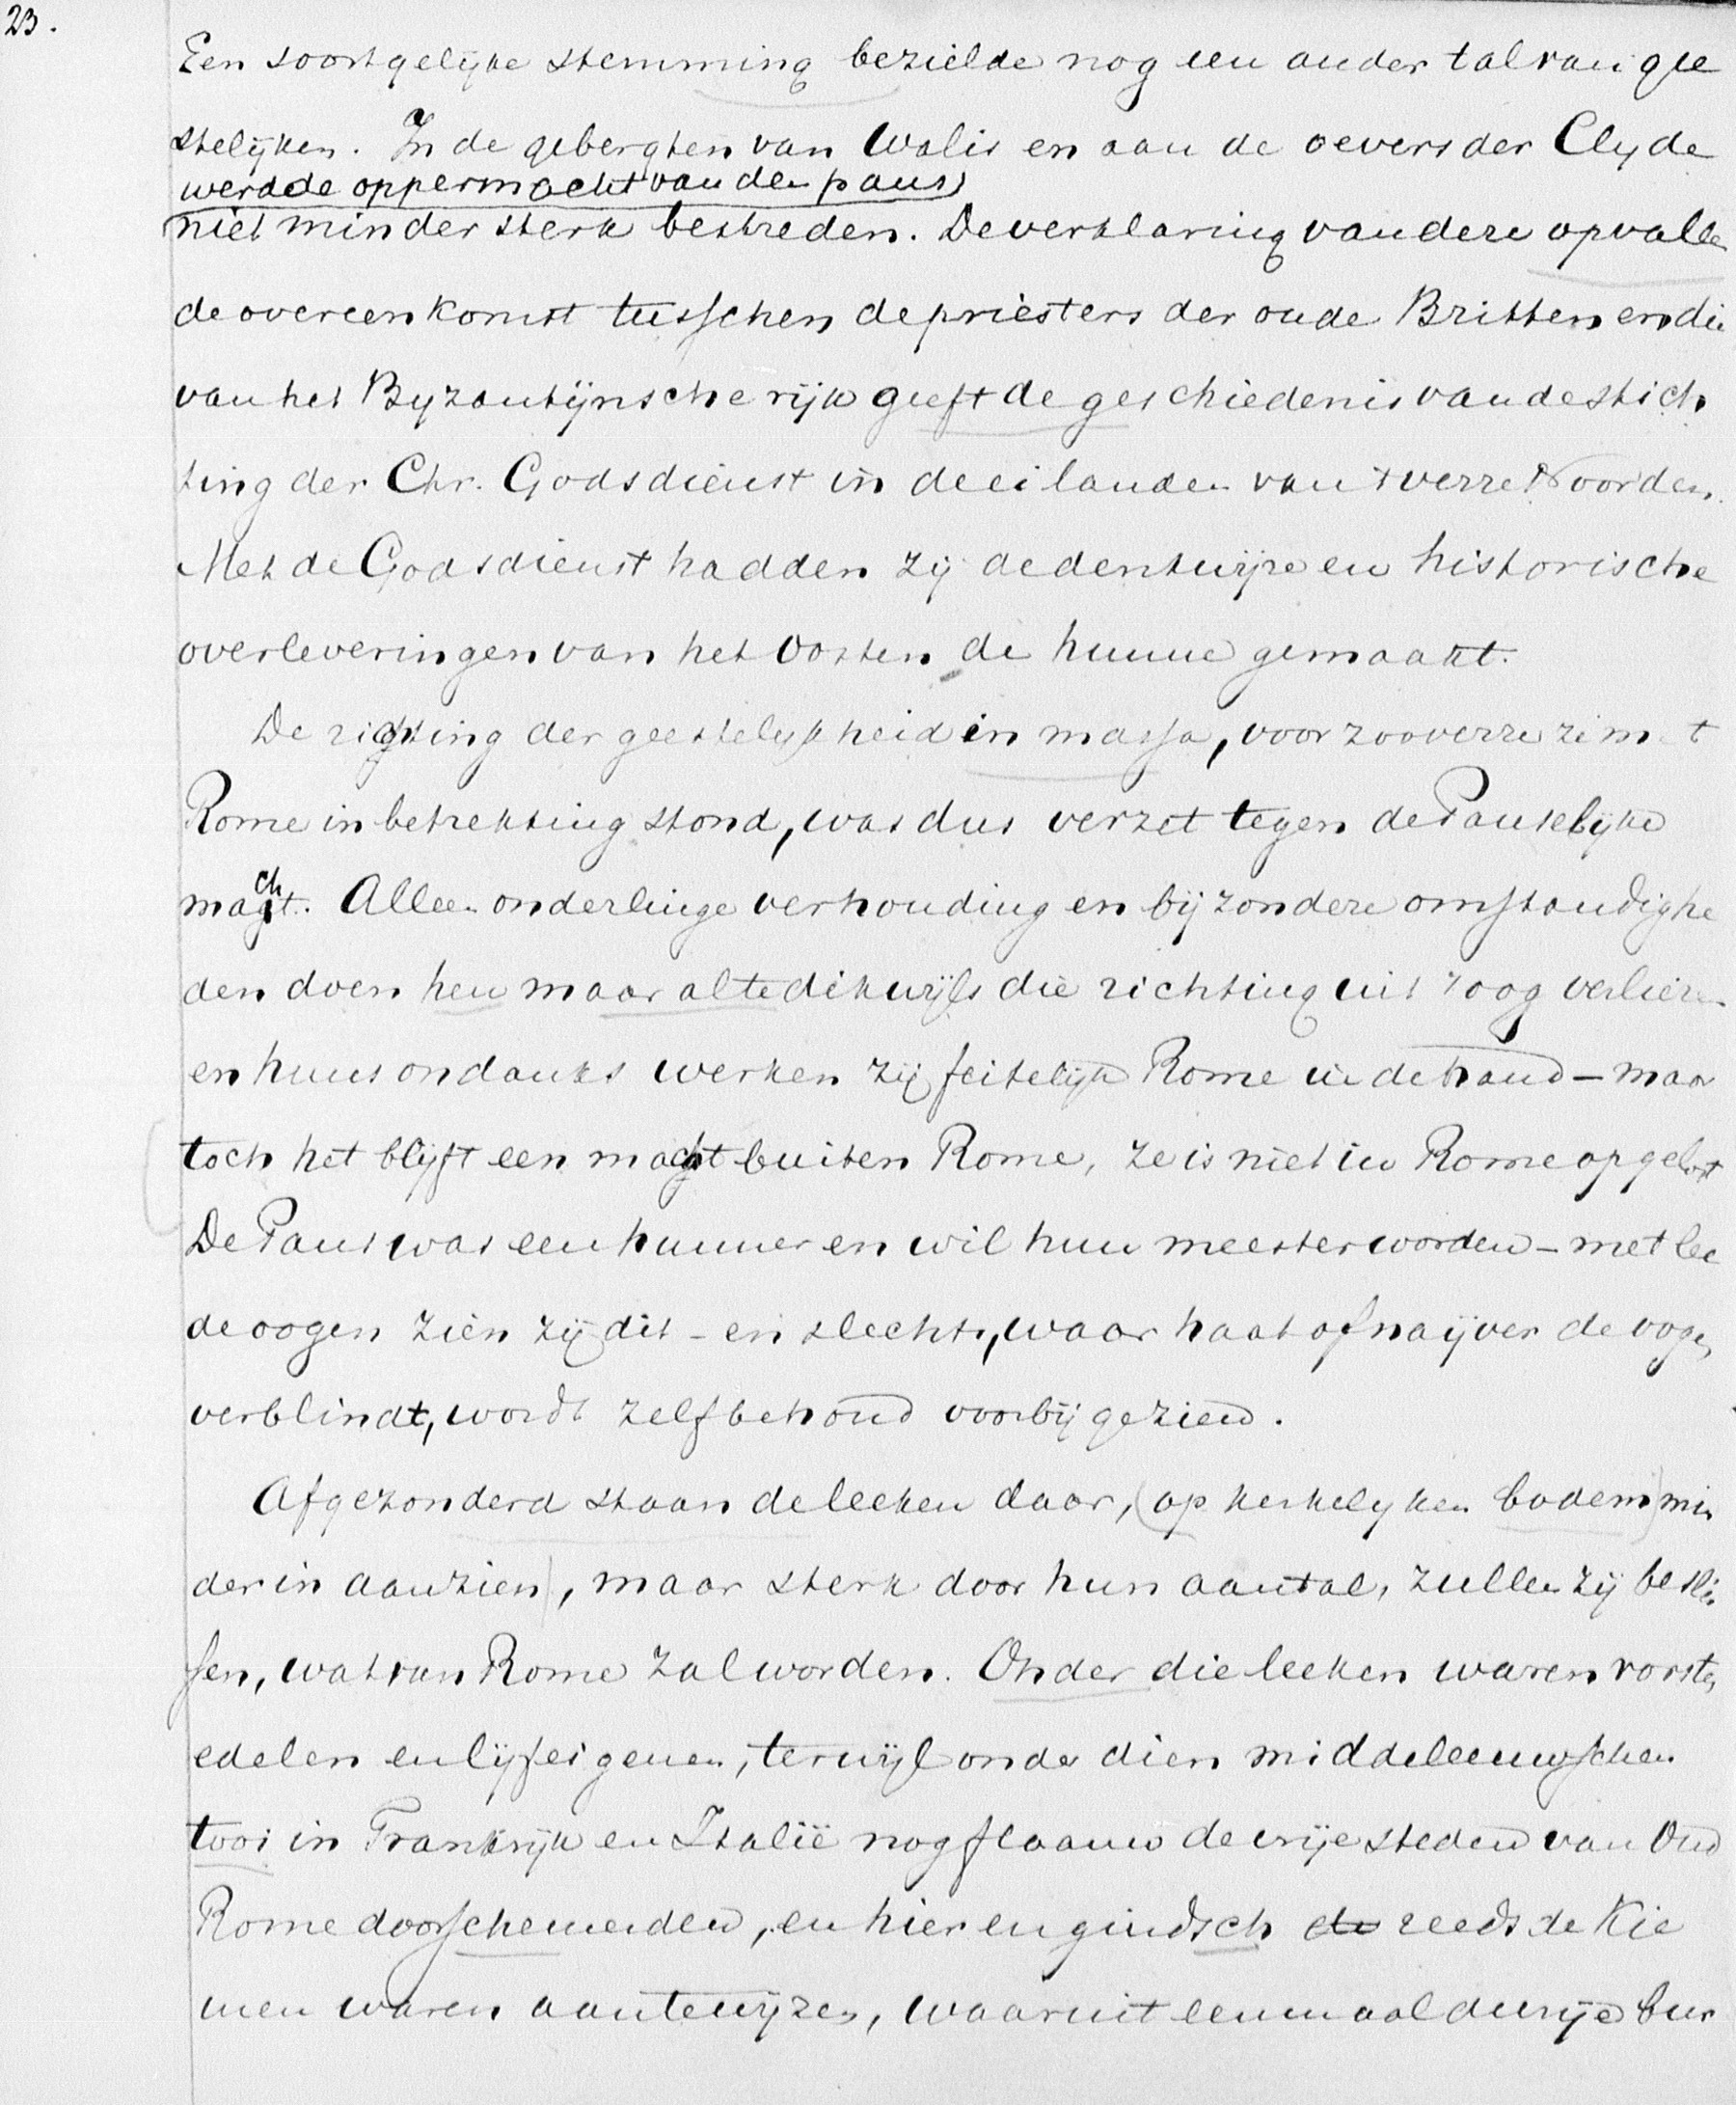 23.
Een soortgelijke stemming bezielde nog een ander tal van gee
stelijken. In de gebergten van Walis en aan de oevers der Clyde
werd de oppermacht van den paus
niet minder sterk bestreden. De verklaring van deze opvallen
de overeenkomst tusschen de priesters der oude Britten en die
van het Byzantijnsche rijk geeft de geschiedenis van de stich
ting der Chr. Godsdienst in de eilanden van 't verre Noorden.
Met de Godsdienst hadden zij de denkwijze en historische
overleveringen van het Oosten de hunne gemaakt.
De richting der geestelijkheid in massa, voor zooverre ze met
Rome in betrekking stond, was dus verzet tegen de Pauselijke
macht. Alleen onderlinge verhouding en bijzondere omstandighe
den doen hen maar al te dikwijls die richting uit 't oog verliezen
en huns ondanks werken zij feitelijk Rome in de hand – maar
toch het blijft een macht buiten Rome, ze is niet in Rome opgelost
De Paus was een hunner en wil hun meester worden – met lee
de oogen zien zij dit – en slechts, waar haat of naijver de oogen
verblindt, wordt zelfbehoud voorbij gezien.
Afgezonderd staan de leeken daar, (op kerkelijken bodem) min
der in aanzien), maar sterk door hun aantal, zullen zij beslis
sen, wat van Rome zal worden. Onder die leeken waren vorsten,
edelen en lijfeigenen, terwijl onder dien middeleeuwschen
tooi in Frankrijk en Italië nog flaauw de vrije steden van Oud
Rome doorschemerden, en hier en gindsch de reeds de Kie
men waren aantewijzen, waaruit eenmaal de vrije bur